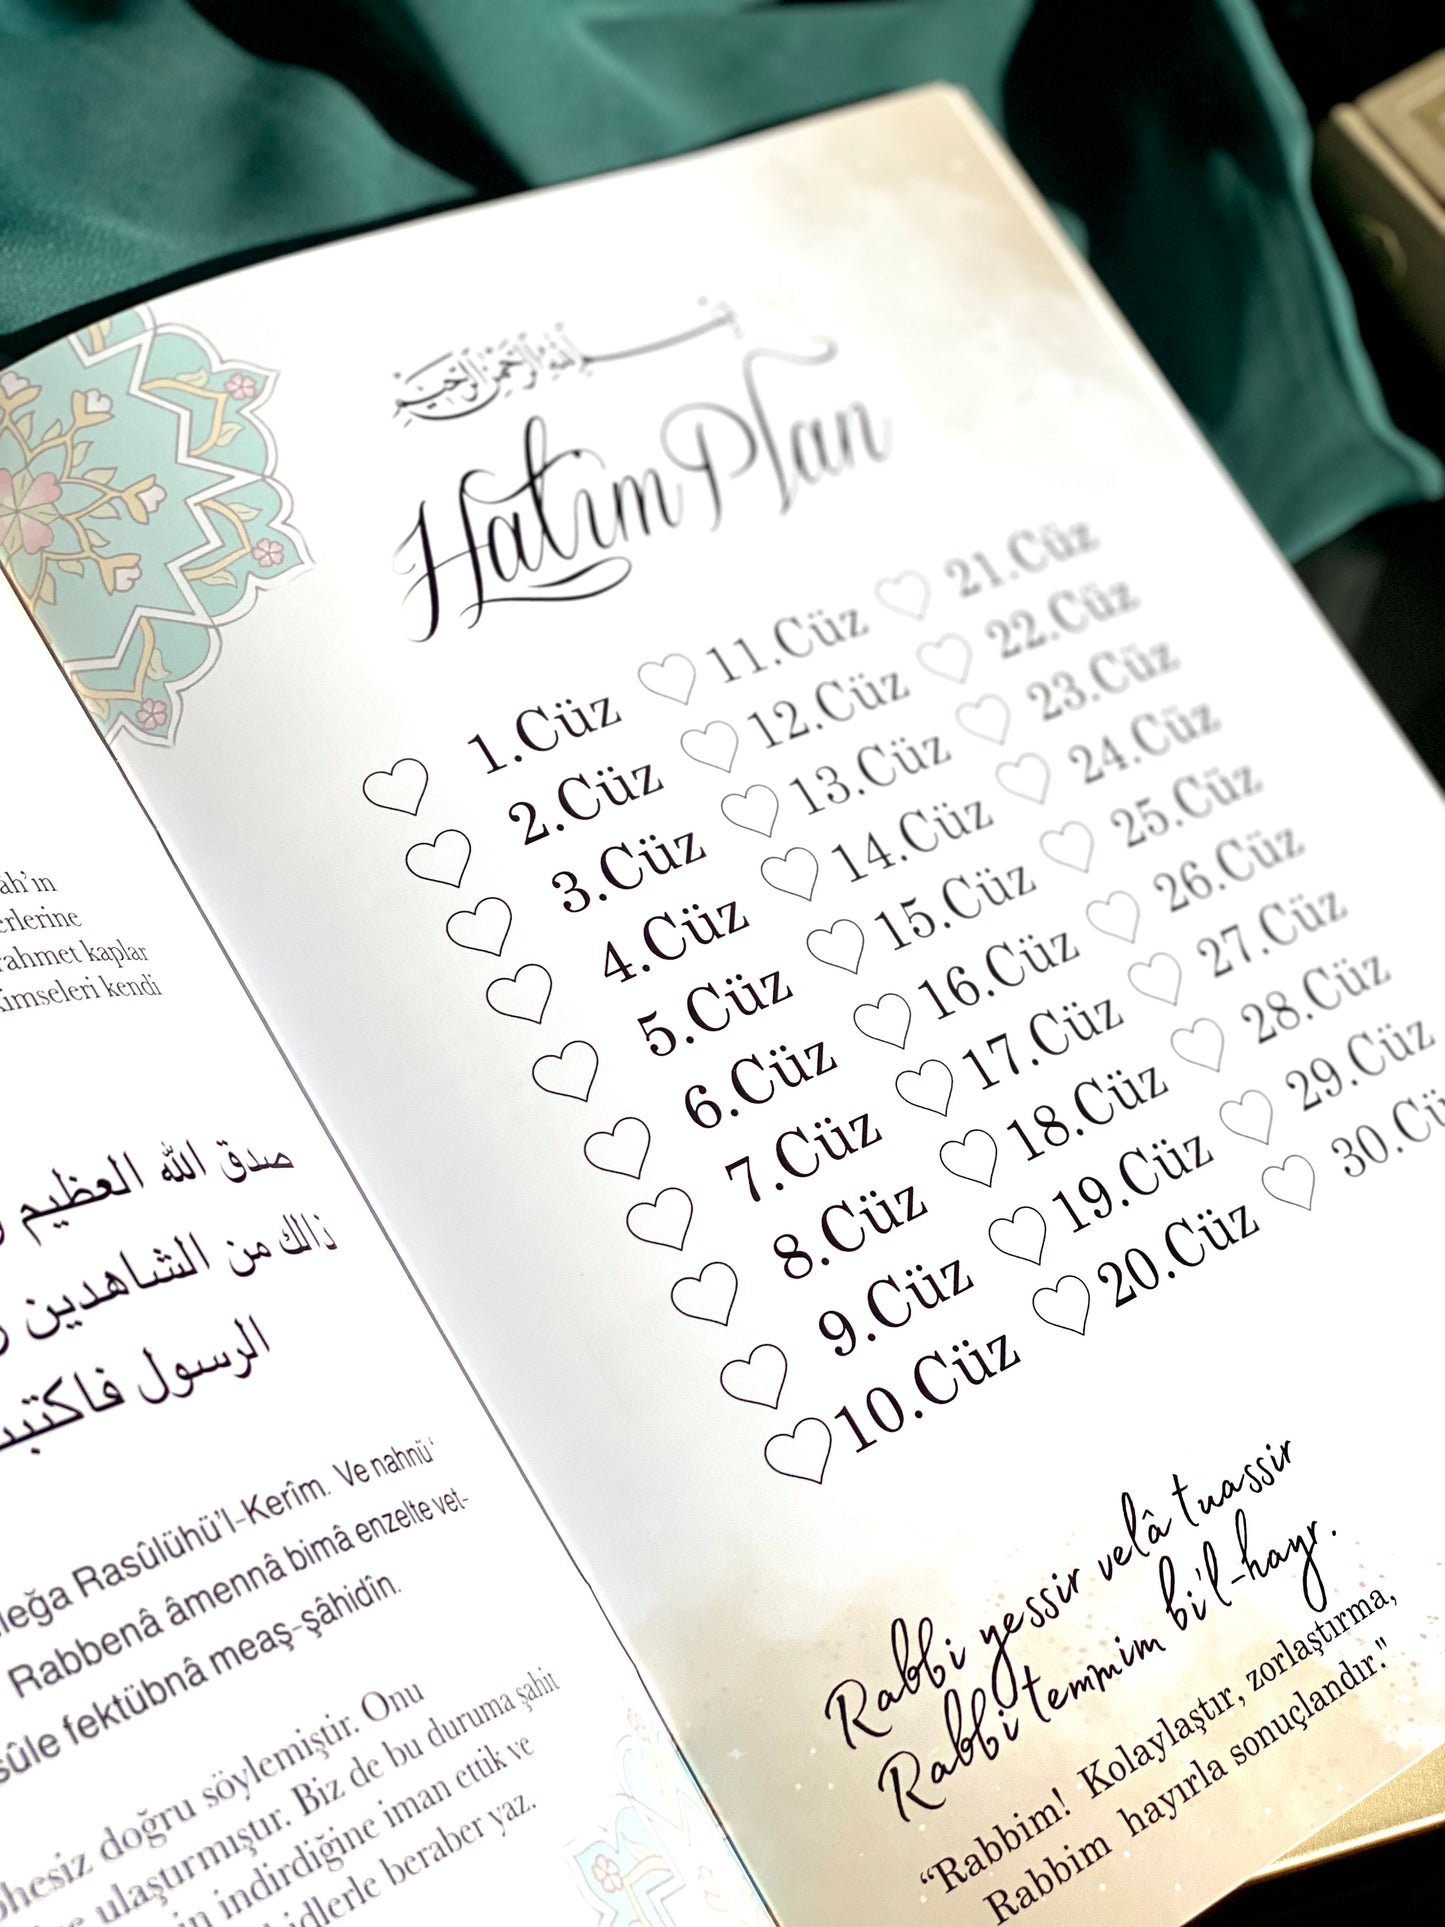 âh'ın
erlerine
rahmet kaplar
kimseleri kendi
صدق الله العظيم
ذالك من الشاهدين
الرسول
leğa Rasûlühü'l-Kerîm. Ve nahnü'
Rabbenâ âmennâ bimâ enzelte vet-
sûle fektübnâ meaş-şâhidîn.
hesiz doğru söylemiştir. Onu
ulaştırmıştır. Biz de bu duruma şahit
indirdiğine iman ettik ve
idlerle beraber yaz.
بسم الله الرحمن الرحيم
Hatim Plan
1.Cüz 11.Cüz 21.Cüz
2.Cüz 12.Cüz 22.Cüz
3.Cüz 13.Cüz 23.Cüz
4.Cüz 14.Cüz 24.Cüz
5.Cüz 15.Cüz 25.Cüz
6.Cüz 16.Cüz 26.Cüz
7.Cüz 17.Cüz 27.Cüz
8.Cüz 18.Cüz 28.Cüz
9.Cüz 19.Cüz 29.Cüz
10.Cüz 20.Cüz 30.Cü
Rabbi yessir velâ tuassir
Rabbi temmim bi'l-hayr.
“Rabbim! Kolaylaştır, zorlaştırma,
Rabbim hayırla sonuçlandır."